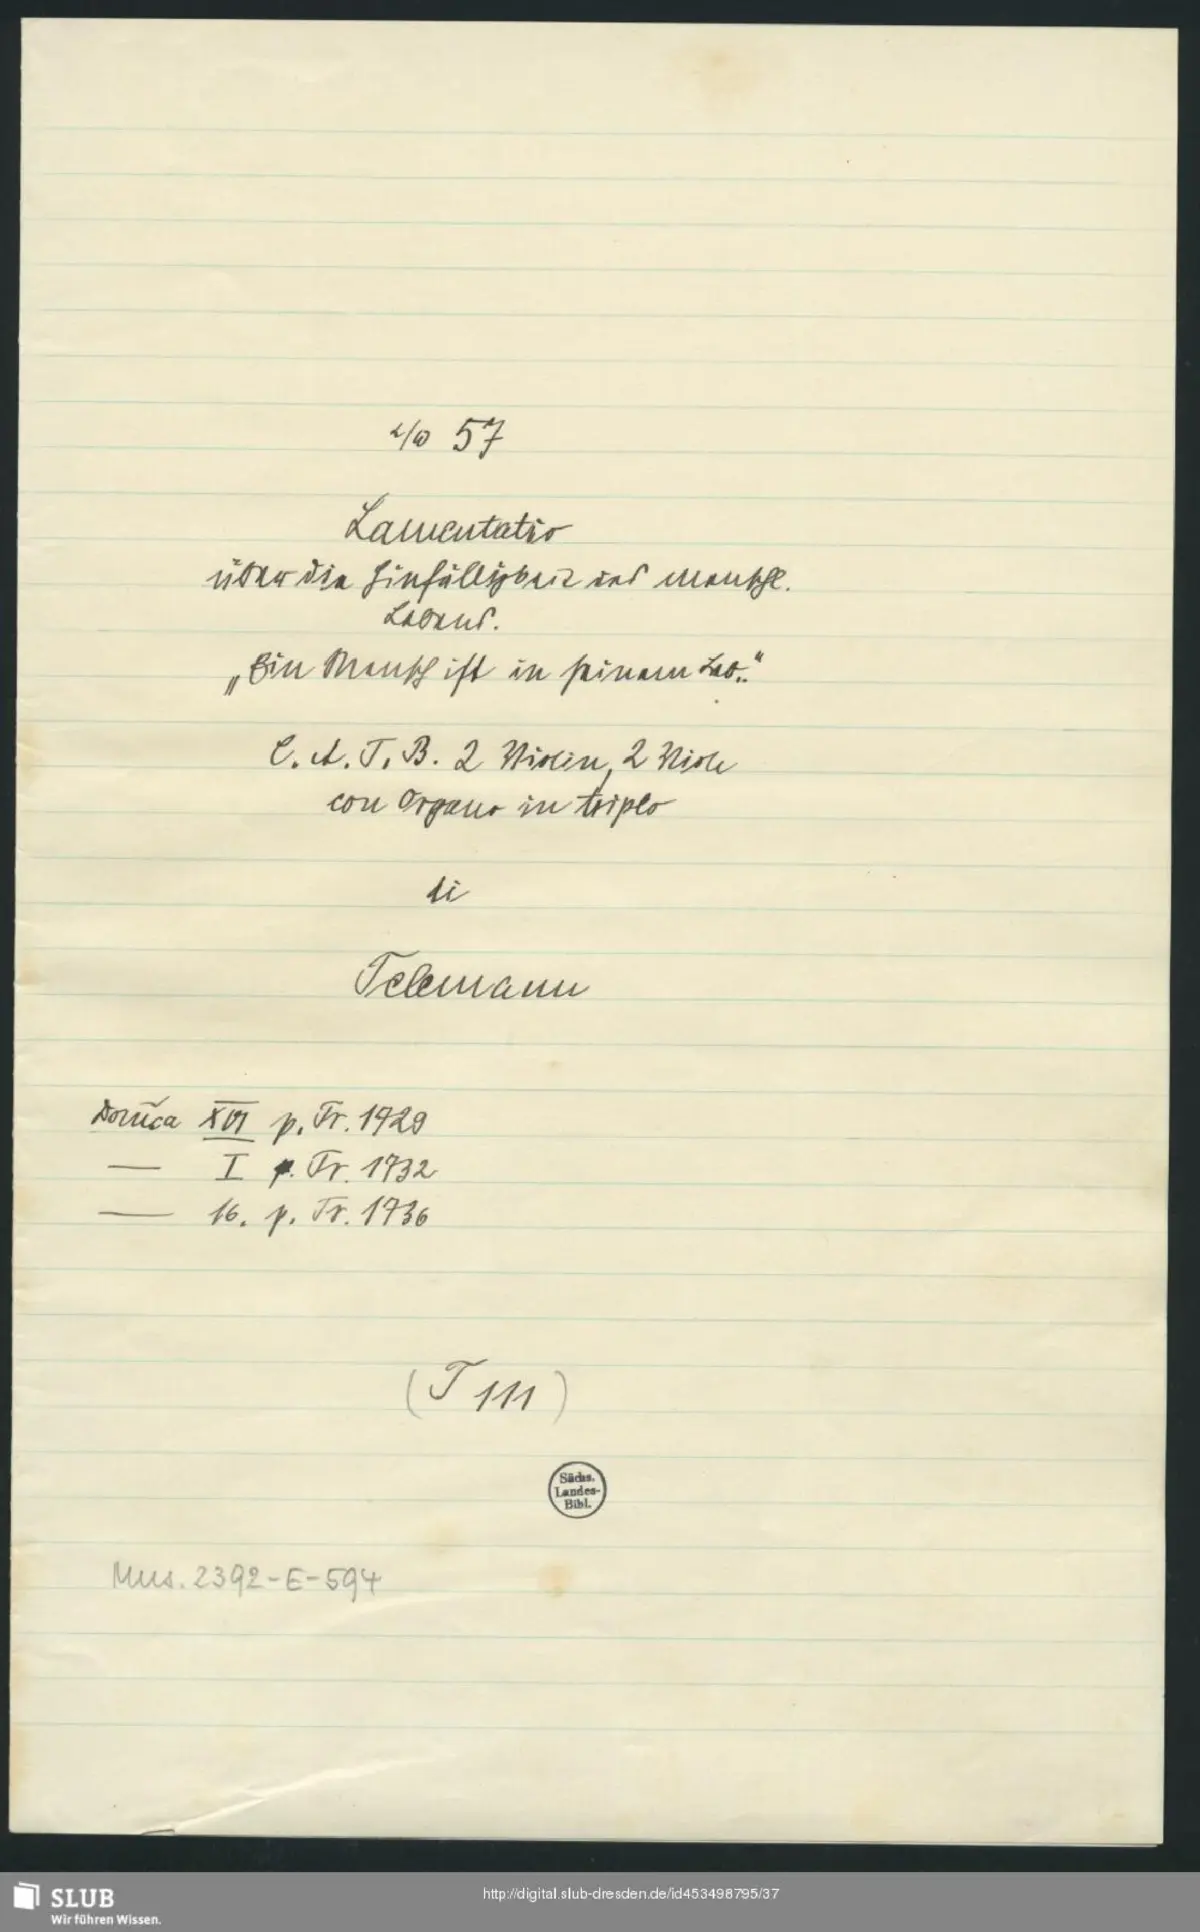 57
Lamentatio
über die Hinfälligkeit des menschl.
Lebens.
„Ein Mensch ist in seinem Leb..“
C. A. T. B. 2 Violin, 2 Viole
con Organo in triplo
di
Telemann
Domica XVI p. Tr. 1729
— I p. Tr. 1732
— 16. p. Tr. 1736
(T 111)
Sächs.
Landes-
Bibl.
Mus. 2392-E-594
SLUB
Wir führen Wissen.
http://digital.slub-dresden.de/id453498795/37